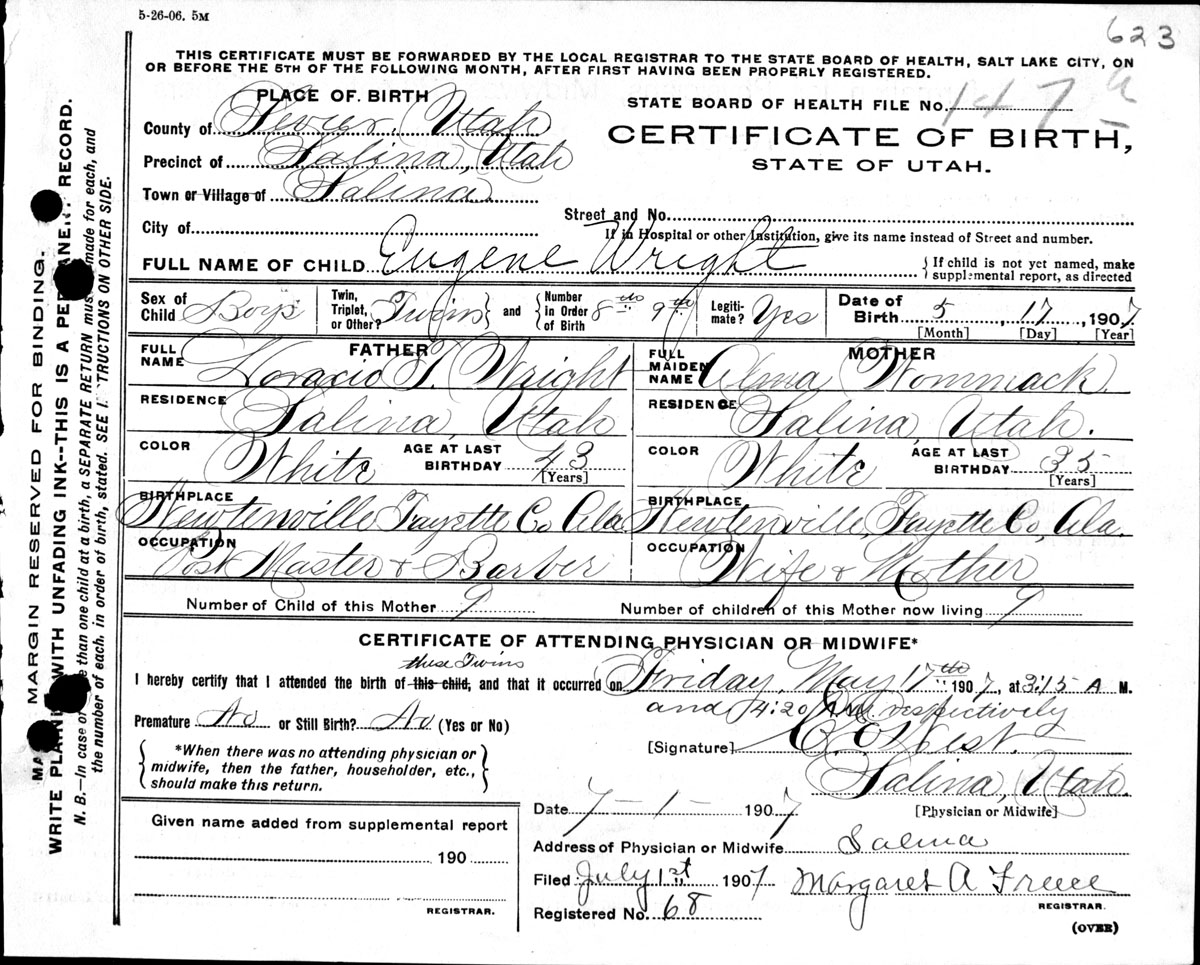 5-26-06. 5M
623
THIS CERTIFICATE MUST BE FORWARDED BY THE LOCAL REGISTRAR TO THE STATE BOARD OF HEALTH, SALT LAKE CITY, ON
OR BEFORE THE 5TH OF THE FOLLOWING MONTH, AFTER FIRST HAVING BEEN PROPERLY REGISTERED.
PLACE OF BIRTH
County of Sevier, Utah
Precinct of Salina, Utah
Town or Village of Salina
City of
STATE BOARD OF HEALTH FILE No. 147 a
CERTIFICATE OF BIRTH,
STATE OF UTAH.
Street and No.
If in Hospital or other Institution, give its name instead of Street and number.
FULL NAME OF CHILD Eugene Wright { If child is not yet named, make
supplemental report, as directed
Sex of Child Boys Twin, Triplet, or Other? Twins } and { Number in Order of Birth 8th 9th Legitimate? Yes Date of Birth 5, 17, 1907
[Month] [Day] [Year]
FATHER
FULL NAME Horacio T. Wright
RESIDENCE Salina, Utah
COLOR White AGE AT LAST BIRTHDAY 43
[Years]
BIRTHPLACE Newtenville Fayette Co Ala.
OCCUPATION Post Master & Barber
MOTHER
FULL MAIDEN NAME Alma Wommack
RESIDENCE Salina, Utah.
COLOR White AGE AT LAST BIRTHDAY 35
[Years]
BIRTHPLACE Newtenville, Fayette Co, Ala.
OCCUPATION Wife & Mother
Number of Child of this Mother 9 Number of children of this Mother now living 9
CERTIFICATE OF ATTENDING PHYSICIAN OR MIDWIFE*
these Twins
I hereby certify that I attended the birth of this child, and that it occurred on Friday, May 17th 1907, at 3:15 A M.
and 4:20 A.M. respectively
Premature No or Still Birth? No (Yes or No)
{ *When there was no attending physician or
midwife, then the father, householder, etc.,
should make this return. }
[Signature] West.
Salina, Utah.
[Physician or Midwife]
Date 7-1- 1907
Given name added from supplemental report
190
REGISTRAR.
Address of Physician or Midwife Salina
Filed July 1st 1907 Margaret A
REGISTRAR.
Registered No. 68
(OVER)
MARGIN RESERVED FOR BINDING.
WRITE WITH UNFADING INK--THIS IS A RECORD.
N. B.—In case of than one child at a birth, a SEPARATE RETURN must made for each, and
the number of each, in order of birth, stated. SEE ON OTHER SIDE.